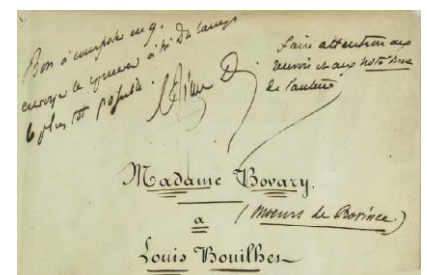 Bon à composer en 9.
envoyer le
le plus tôt possible.
faire attention aux
renvois et aux
de l'auteur
Madame Bovary.
(Moeurs de Province.)
a
Louis Bouilhet